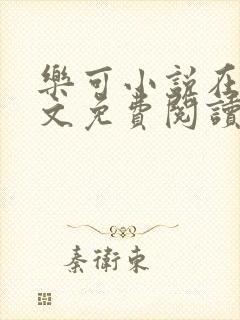 樂可小說在
文免費閱讀
秦衛東